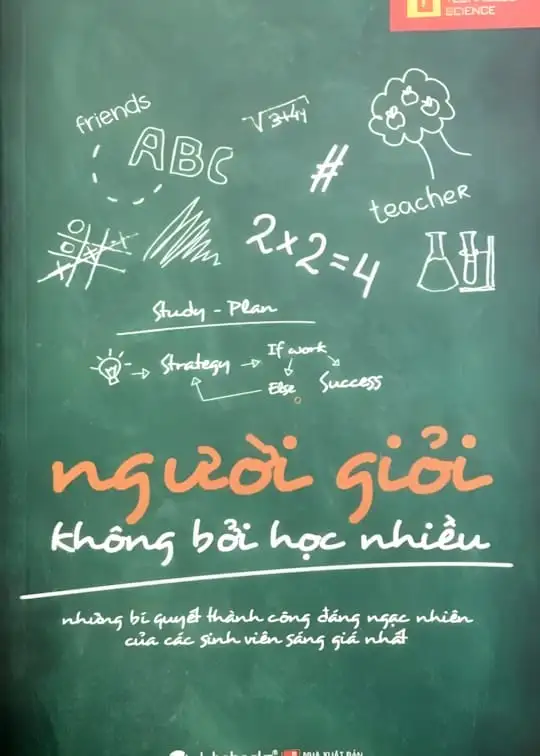 SCIENCE
friends
ABC
√3+4y
#
teacher
2x2=4
Study - Plan
Strategy
If work
Else
Success
người giỏi
không bởi học nhiều
những bí quyết thành công đáng ngạc nhiên
của các sinh viên sáng giá nhất
NHÀ XUẤT BẢN